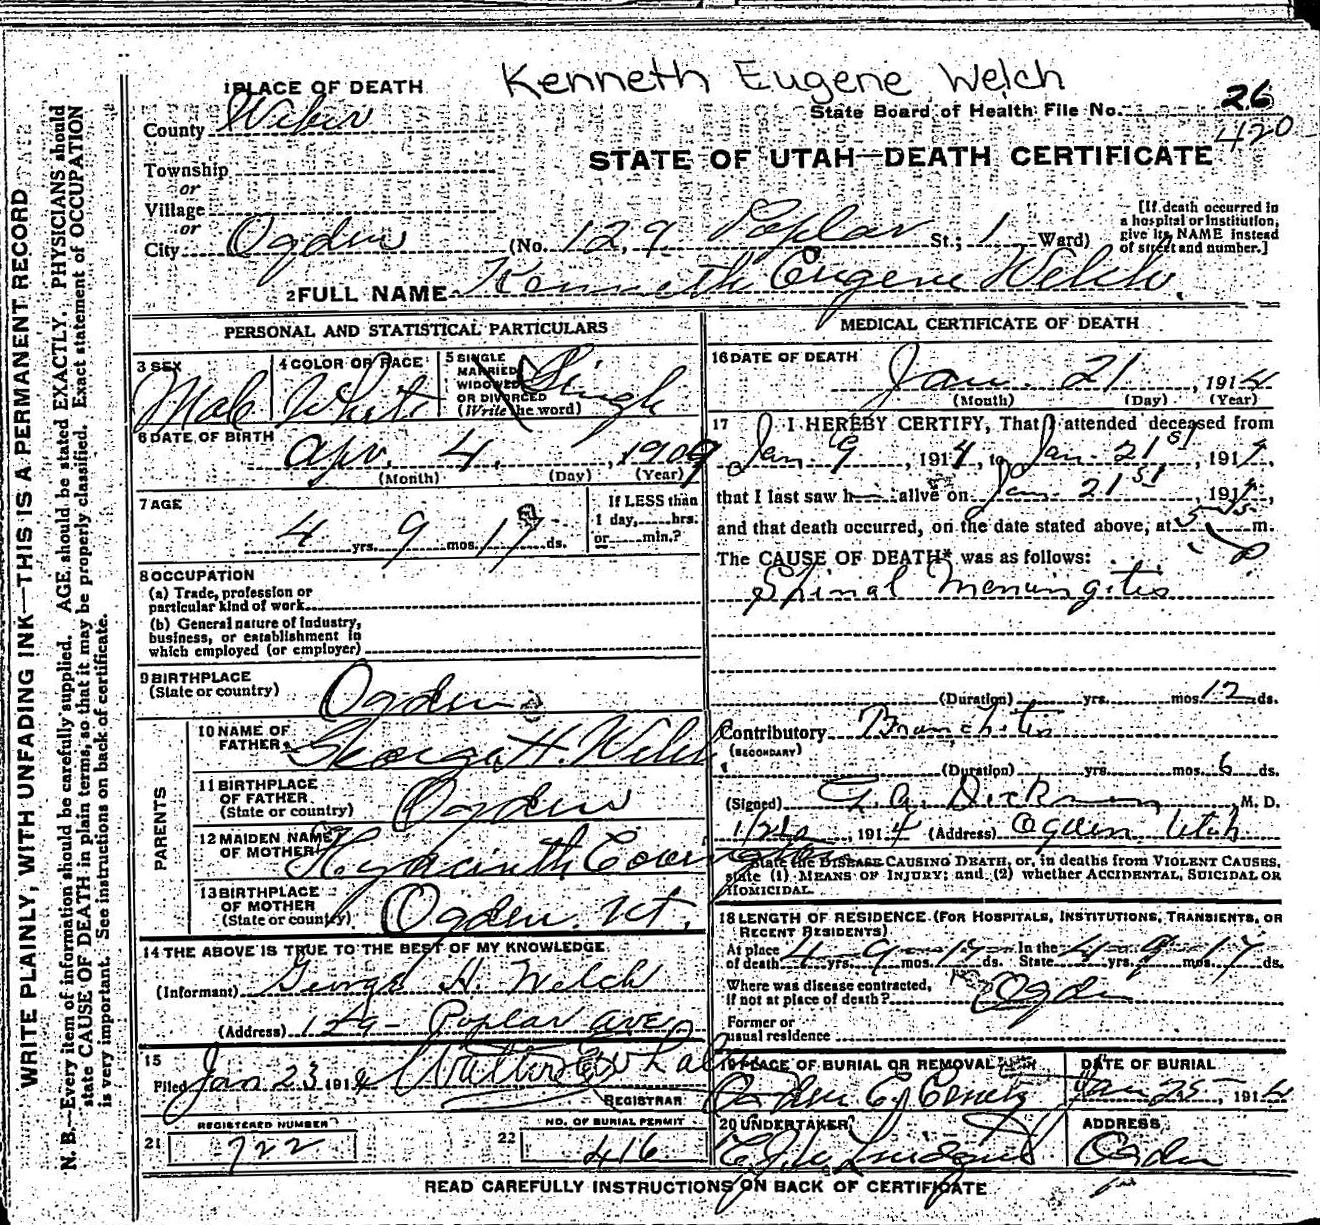 Kenneth Eugene Welch
1 PLACE OF DEATH
26
State Board of Health File No.
420
County Weber
STATE OF UTAH—DEATH CERTIFICATE
Township
or
Village
or
City Ogden (No. 129 Poplar St.; 1 Ward)
[If death occurred in a hospital or institution, give its NAME instead of street and number.]
2 FULL NAME Kenneth Eugene Welch.
PERSONAL AND STATISTICAL PARTICULARS
3 SEX Male
4 COLOR OR RACE White
5 SINGLE MARRIED WIDOWED OR DIVORCED (Write the word) Single
6 DATE OF BIRTH
Apr. 4, 1909
(Month) (Day) (Year)
7 AGE
4 yrs. 9 mos. 17 ds.
If LESS than 1 day,......hrs. or......min.?
8 OCCUPATION
(a) Trade, profession or
particular kind of work
(b) General nature of industry,
business, or establishment in
which employed (or employer)
9 BIRTHPLACE
(State or country) Ogden
PARENTS
10 NAME OF FATHER George H. Welch
11 BIRTHPLACE OF FATHER (State or country) Ogden
12 MAIDEN NAME OF MOTHER Hyacinth
13 BIRTHPLACE OF MOTHER (State or country) Ogden. Ut.
14 THE ABOVE IS TRUE TO THE BEST OF MY KNOWLEDGE
(Informant) George H. Welch
(Address) 129 - Poplar ave
15
Filed Jan 23 1914 Walter
REGISTRAR
21 REGISTERED NUMBER 722
22 NO. OF BURIAL PERMIT 416
MEDICAL CERTIFICATE OF DEATH
16 DATE OF DEATH
Jan. 21, 1914
(Month) (Day) (Year)
17 I HEREBY CERTIFY, That I attended deceased from
Jan. 9, 1914, to Jan. 21st, 191
that I last saw h alive on Jan. 21st, 191
and that death occurred, on the date stated above, at m.
The CAUSE OF DEATH* was as follows:
Spinal Meningitis
(Duration) yrs. mos. 12 ds.
Contributory Bronchitis
(SECONDARY)
(Duration) yrs. mos. 6 ds.
(Signed) M. D.
1914 (Address) Ogden Utah
*State the DISEASE CAUSING DEATH, or, in deaths from VIOLENT CAUSES,
state (1) MEANS OF INJURY; and (2) whether ACCIDENTAL, SUICIDAL OR
HOMICIDAL.
18 LENGTH OF RESIDENCE (FOR HOSPITALS, INSTITUTIONS, TRANSIENTS, OR
RECENT RESIDENTS)
At place of death 4 yrs. 9 mos. 17 ds. In the State 4 yrs. 9 mos. 17 ds.
Where was disease contracted,
if not at place of death? Ogden
Former or
usual residence
19 PLACE OF BURIAL OR REMOVAL
Ogden
DATE OF BURIAL
Jan 25, 1914
20 UNDERTAKER
ADDRESS
Ogden
READ CAREFULLY INSTRUCTIONS ON BACK OF CERTIFICATE
WRITE PLAINLY, WITH UNFADING INK—THIS IS A PERMANENT RECORD
N. B.—Every item of information should be carefully supplied. AGE should be stated EXACTLY. PHYSICIANS should
state CAUSE OF DEATH in plain terms, so that it may be properly classified. Exact statement of OCCUPATION
is very important. See instructions on back of certificate.